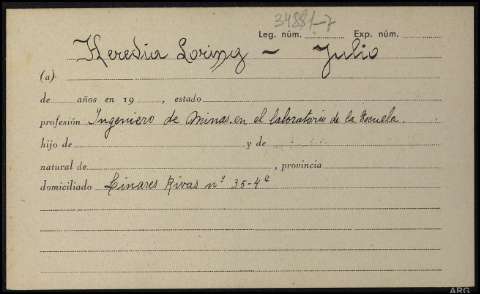 34881-7
Leg. núm. Exp. núm.
Heredia Loring - Julio
(a)
de años en 19 , estado
profesión Ingeniero de Minas en el laboratorio de la Escuela.
hijo de y de
natural de , provincia
domiciliado Linares Rivas nº 35-4º
ARG